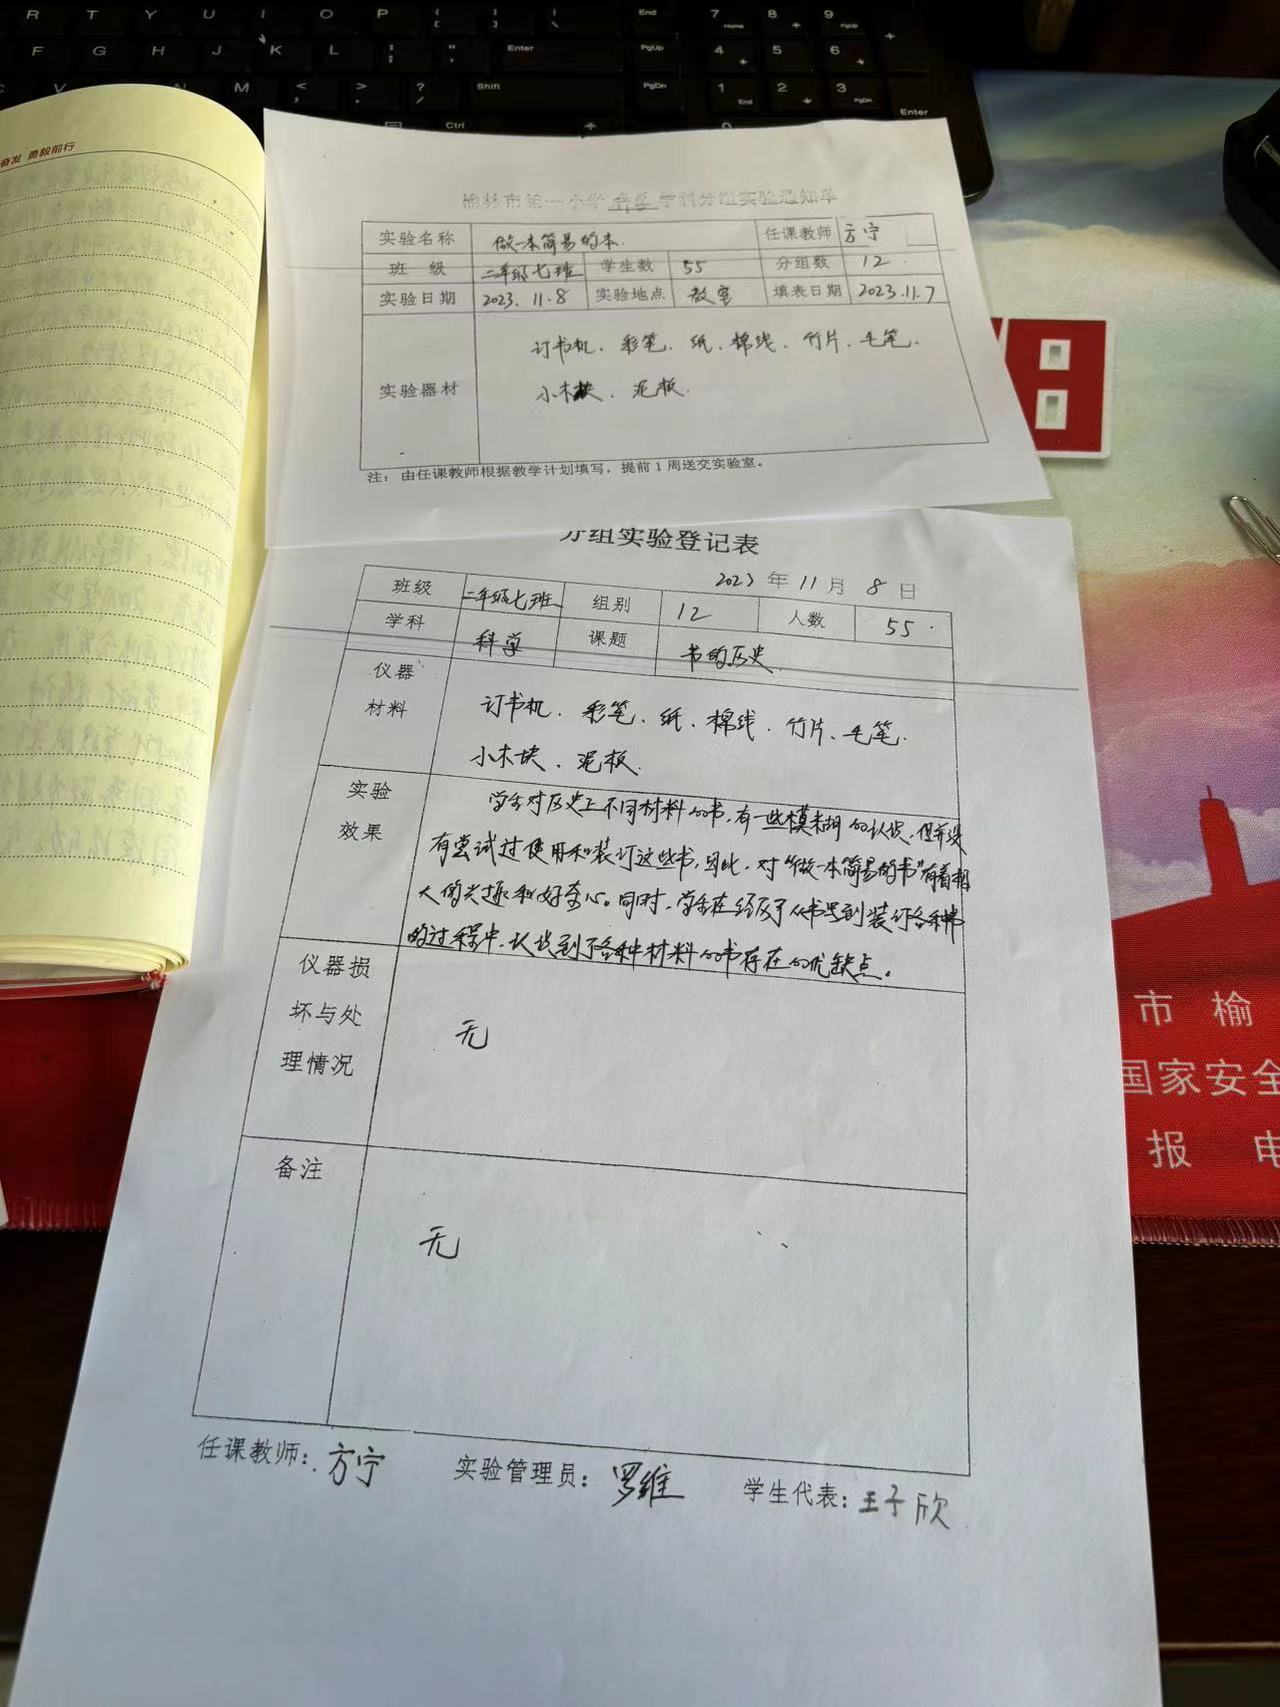 R T Y U I O P End 7 8 9
F G H J K L Enter PgUp 4 5 6
C V B N M Shift PgDn 1 2 3
Ctrl Enter
奋发 勇毅前行
榆林市第一小学 科学 学科分组实验通知单
实验名称 做一本简易的本. 任课教师 方宁
班 级 二年级七班 学生数 55 分组数 12
实验日期 2023. 11. 8 实验地点 教室 填表日期 2023.11.7
实验器材 订书机、彩笔、纸、棉线、竹片、毛笔、
小木块、泥板.
注: 由任课教师根据教学计划填写，提前1周送交实验室。
分组实验登记表
2023 年 11 月 8 日
班级 二年级七班 组别 12 人数 55
学科 科学 课题 书的历史.
仪器材料 订书机、彩笔、纸、棉线、竹片、毛笔.
小木块、泥板.
实验效果 学生对历史上不同材料的书，有一些模糊的认识，但并没
有尝试过使用和装订这些书，因此，对“做一本简易的书”有着极
大的兴趣和好奇心。同时，学生在经历了从书写到装订各种书
的过程中，认识到了各种材料的书存在的优缺点。
仪器损坏与处理情况 无
备注 无
任课教师: 方宁 实验管理员: 罗维 学生代表: 王子欣
市 榆
国家安全
报 电